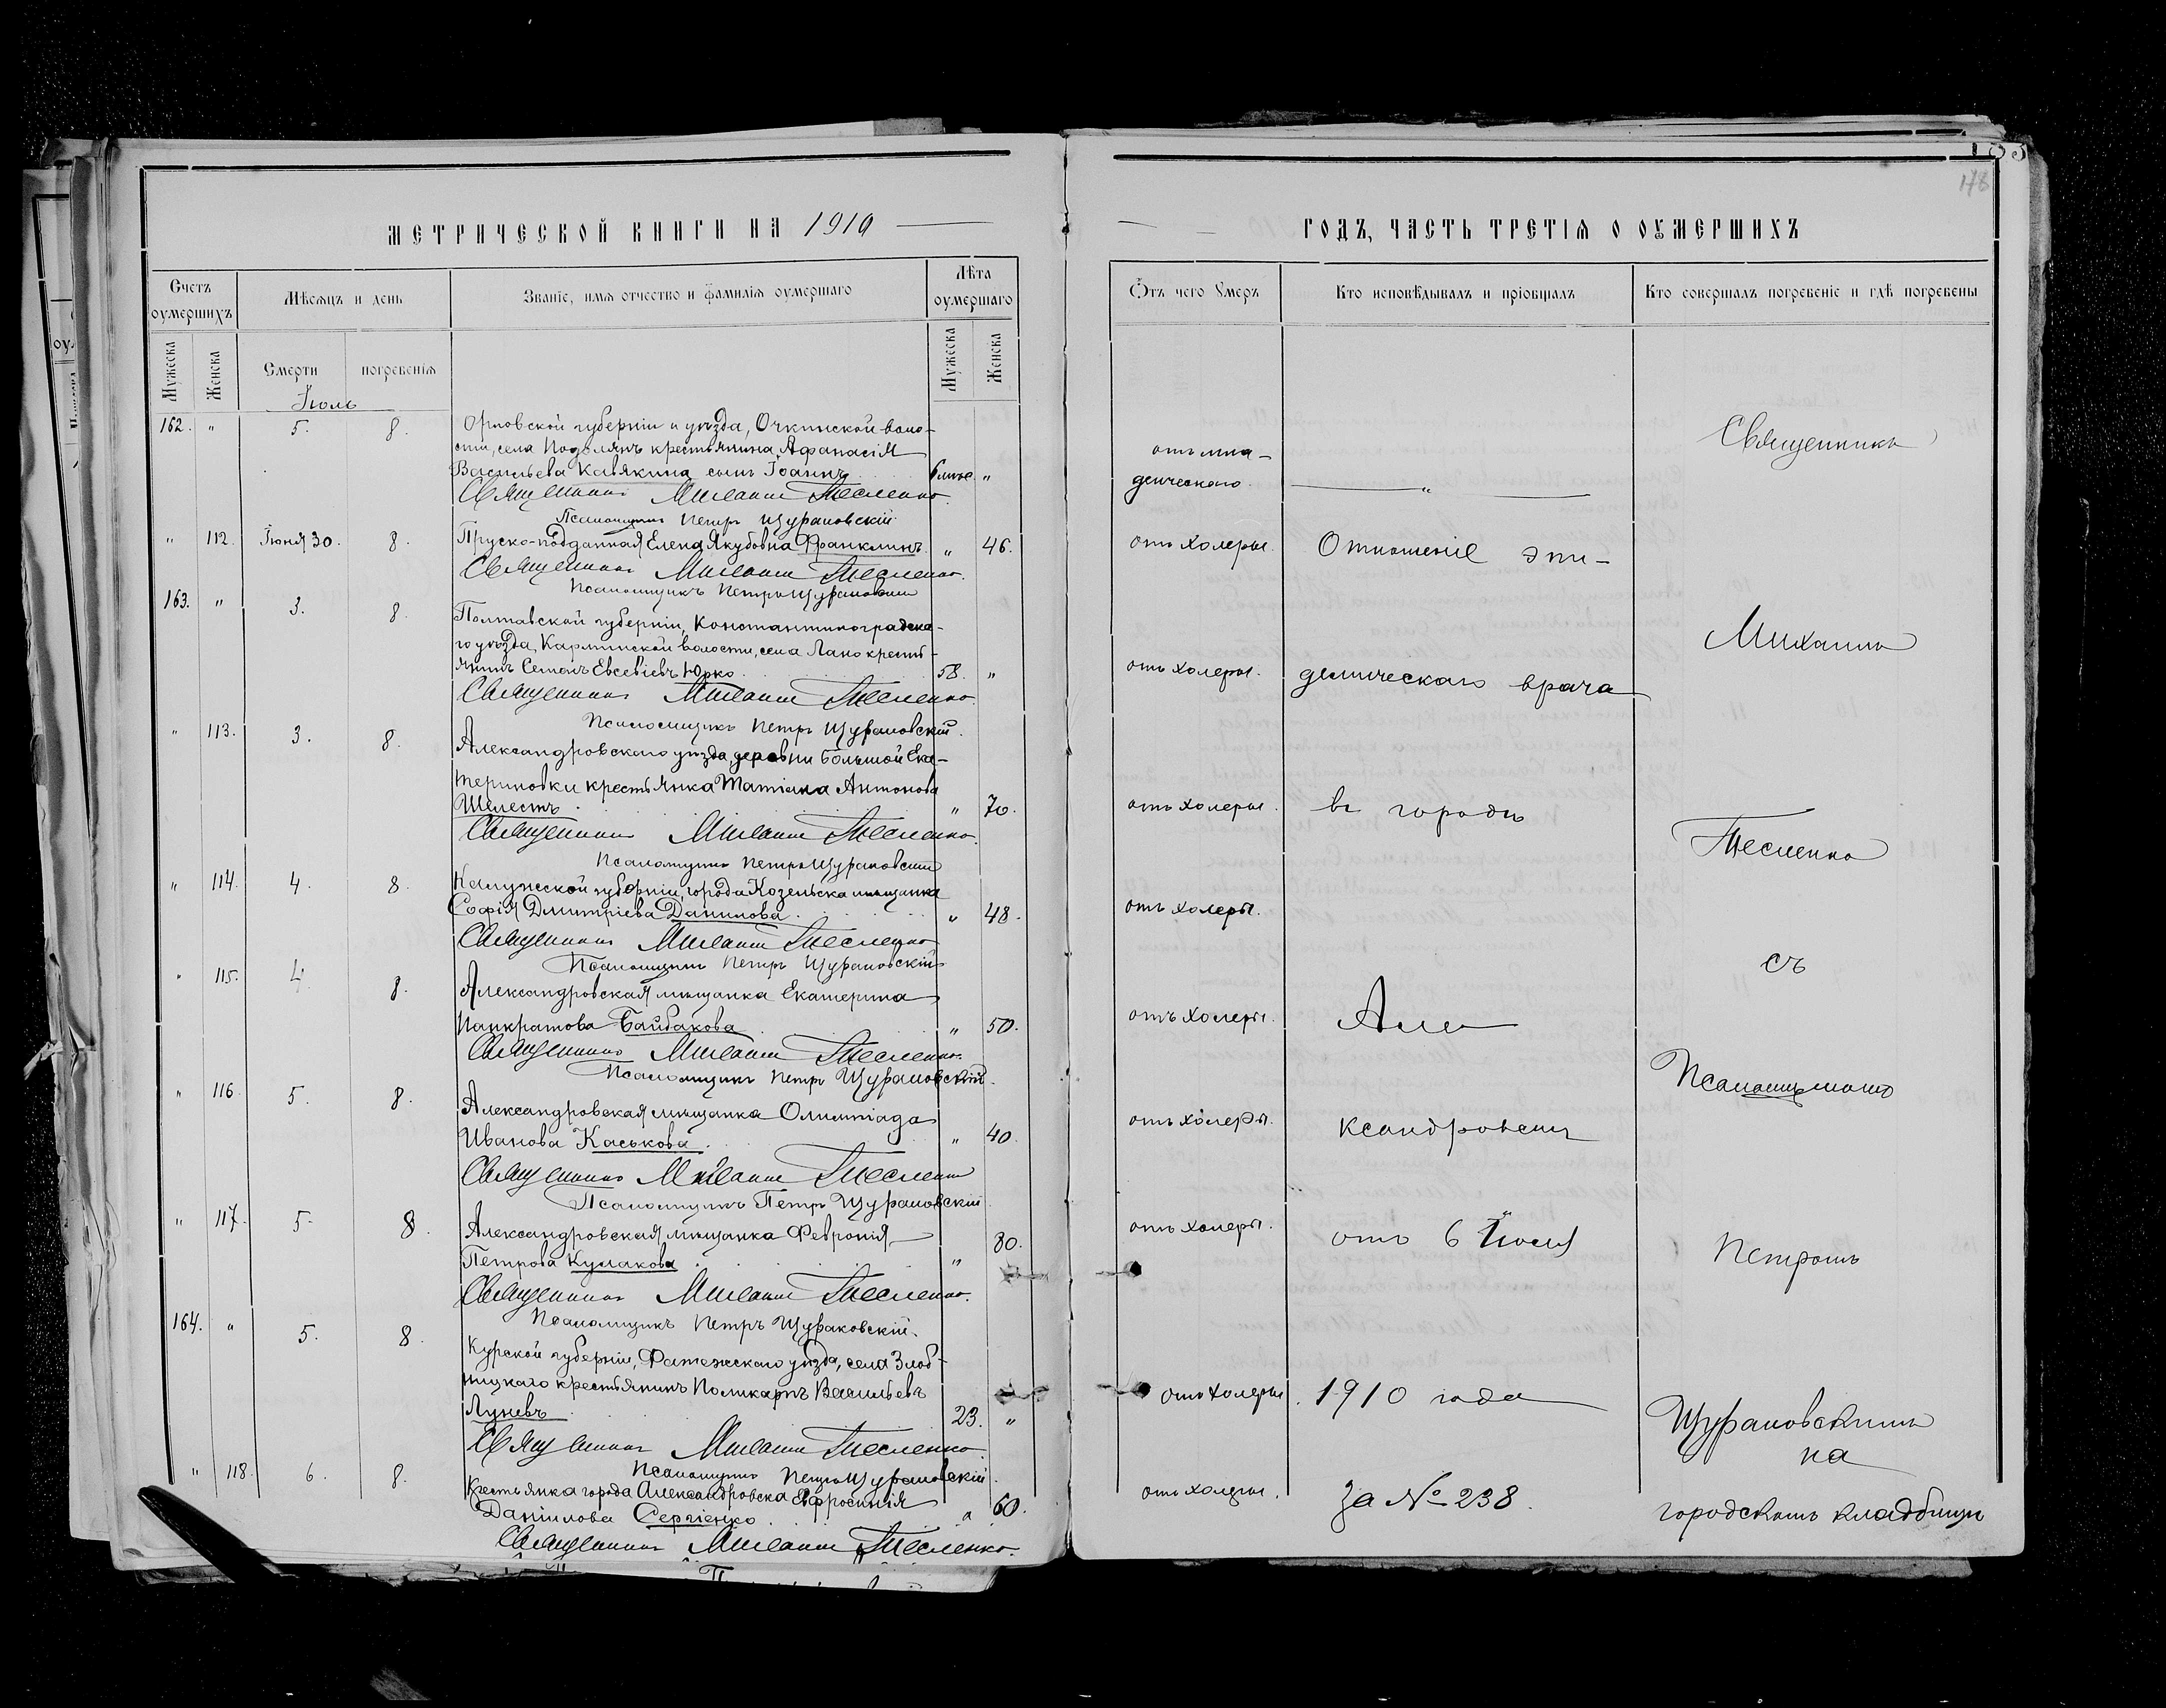 МЕТРИЧЕСКОЙ КНИГИ НА 1910
Счетъ оумершихъ
Мѣсяцъ и день
Званіе, имя отчество и фамилія оумершаго
Лѣта оумершаго
Мужеска
Женска
Смерти
погребенія
Мужеска
Женска
Іюль
162. " 5. 8. Орловской губерніи и уѣзда, Очкинской воло-
сти, села Подолянъ крестьянина Аѳанасія
Васильева Кавякина сынъ Іоаннъ 6 мѣс. "
Священникъ Михаилъ Тесленко.
Псаломщикъ Петръ Щурановскій
" 112. Іюня 30. 8. Пруско-подданная Елена Якубовна Франклинъ " 46.
Священникъ Михаилъ Тесленко.
Псаломщикъ Петръ Щурановскій
163. " 3. 8. Полтавской губерніи, Константиноградска-
го уѣзда, Карлинской волости, села Лано кресть-
янинъ Семенъ Евсевіевъ Юрко 58. "
Священникъ Михаилъ Тесленко.
Псаломщикъ Петръ Щурановскій.
" 113. 3. 8. Александровскаго уѣзда, деревни Большой Ека-
териновки крестьянка Татіана Антонова
Шелестъ " 70.
Священникъ Михаилъ Тесленко.
Псаломщикъ Петръ Щурановскій
" 114. 4. 8. Калужской губерніи, города Козельска мѣщанка
Софія Дмитріева Данилова " 48.
Священникъ Михаилъ Тесленко
Псаломщикъ Петръ Щурановскій
" 115. 4. 8. Александровская мѣщанка Екатерина
Панкратова Байбакова " 50.
Священникъ Михаилъ Тесленко.
Псаломщикъ Петръ Щурановскій.
" 116. 5. 8. Александровская мѣщанка Олимпіада
Иванова Каськова " 40.
Священникъ Михаилъ Тесленко
Псаломщикъ Петръ Щурановскій
" 117. 5. 8. Александровская мѣщанка Февронія
Петрова Кулакова " 80.
Священникъ Михаилъ Тесленко.
Псаломщикъ Петръ Щурановскій.
164. " 5. 8. Курской губерніи, Фатежскаго уѣзда, села Злоб-
ицкаго крестьянинъ Поликарпъ Васильевъ
Луневъ 23. "
Священникъ Михаилъ Тесленко
Псаломщикъ Петръ Щурановскій.
" 118. 6. 8. Крестьянка города Александровска Евфросинія
Даніилова Сергіенко " 60.
Священникъ Михаилъ Тесленко.
178
ГОДЪ, ЧАСТЬ ТРЕТІЯ О ОУМЕРШИХЪ
Отъ чего умеръ
Кто исповѣдывалъ и пріобщалъ
Кто совершалъ погребеніе и гдѣ погребены
отъ мла-
денческаго.
отъ холеры.
отъ холеры.
отъ холеры.
отъ холеры.
отъ холеры.
отъ холеры.
отъ холеры.
отъ холеры.
отъ холеры.
"
Отношеніе эпи-
демическаго врача
въ городѣ
Але
ксандровскѣ
отъ 6 Іюля
1910 года
за № 238.
Священникъ
Михаилъ
Тесленко
съ
Псаломщикомъ
Петромъ
Щурановскимъ
на
городскомъ кладбищѣ